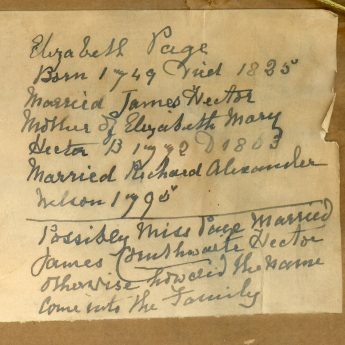 Elizabeth Page
Born 1749 Died 1825
Married James Hector
Mother of Elizabeth Mary
Hector B 1772 D 1803
Married Richard Alexander
Nelson 1795
Possibly Miss Page Married
James Hector
otherwise how did the name
come into the Family